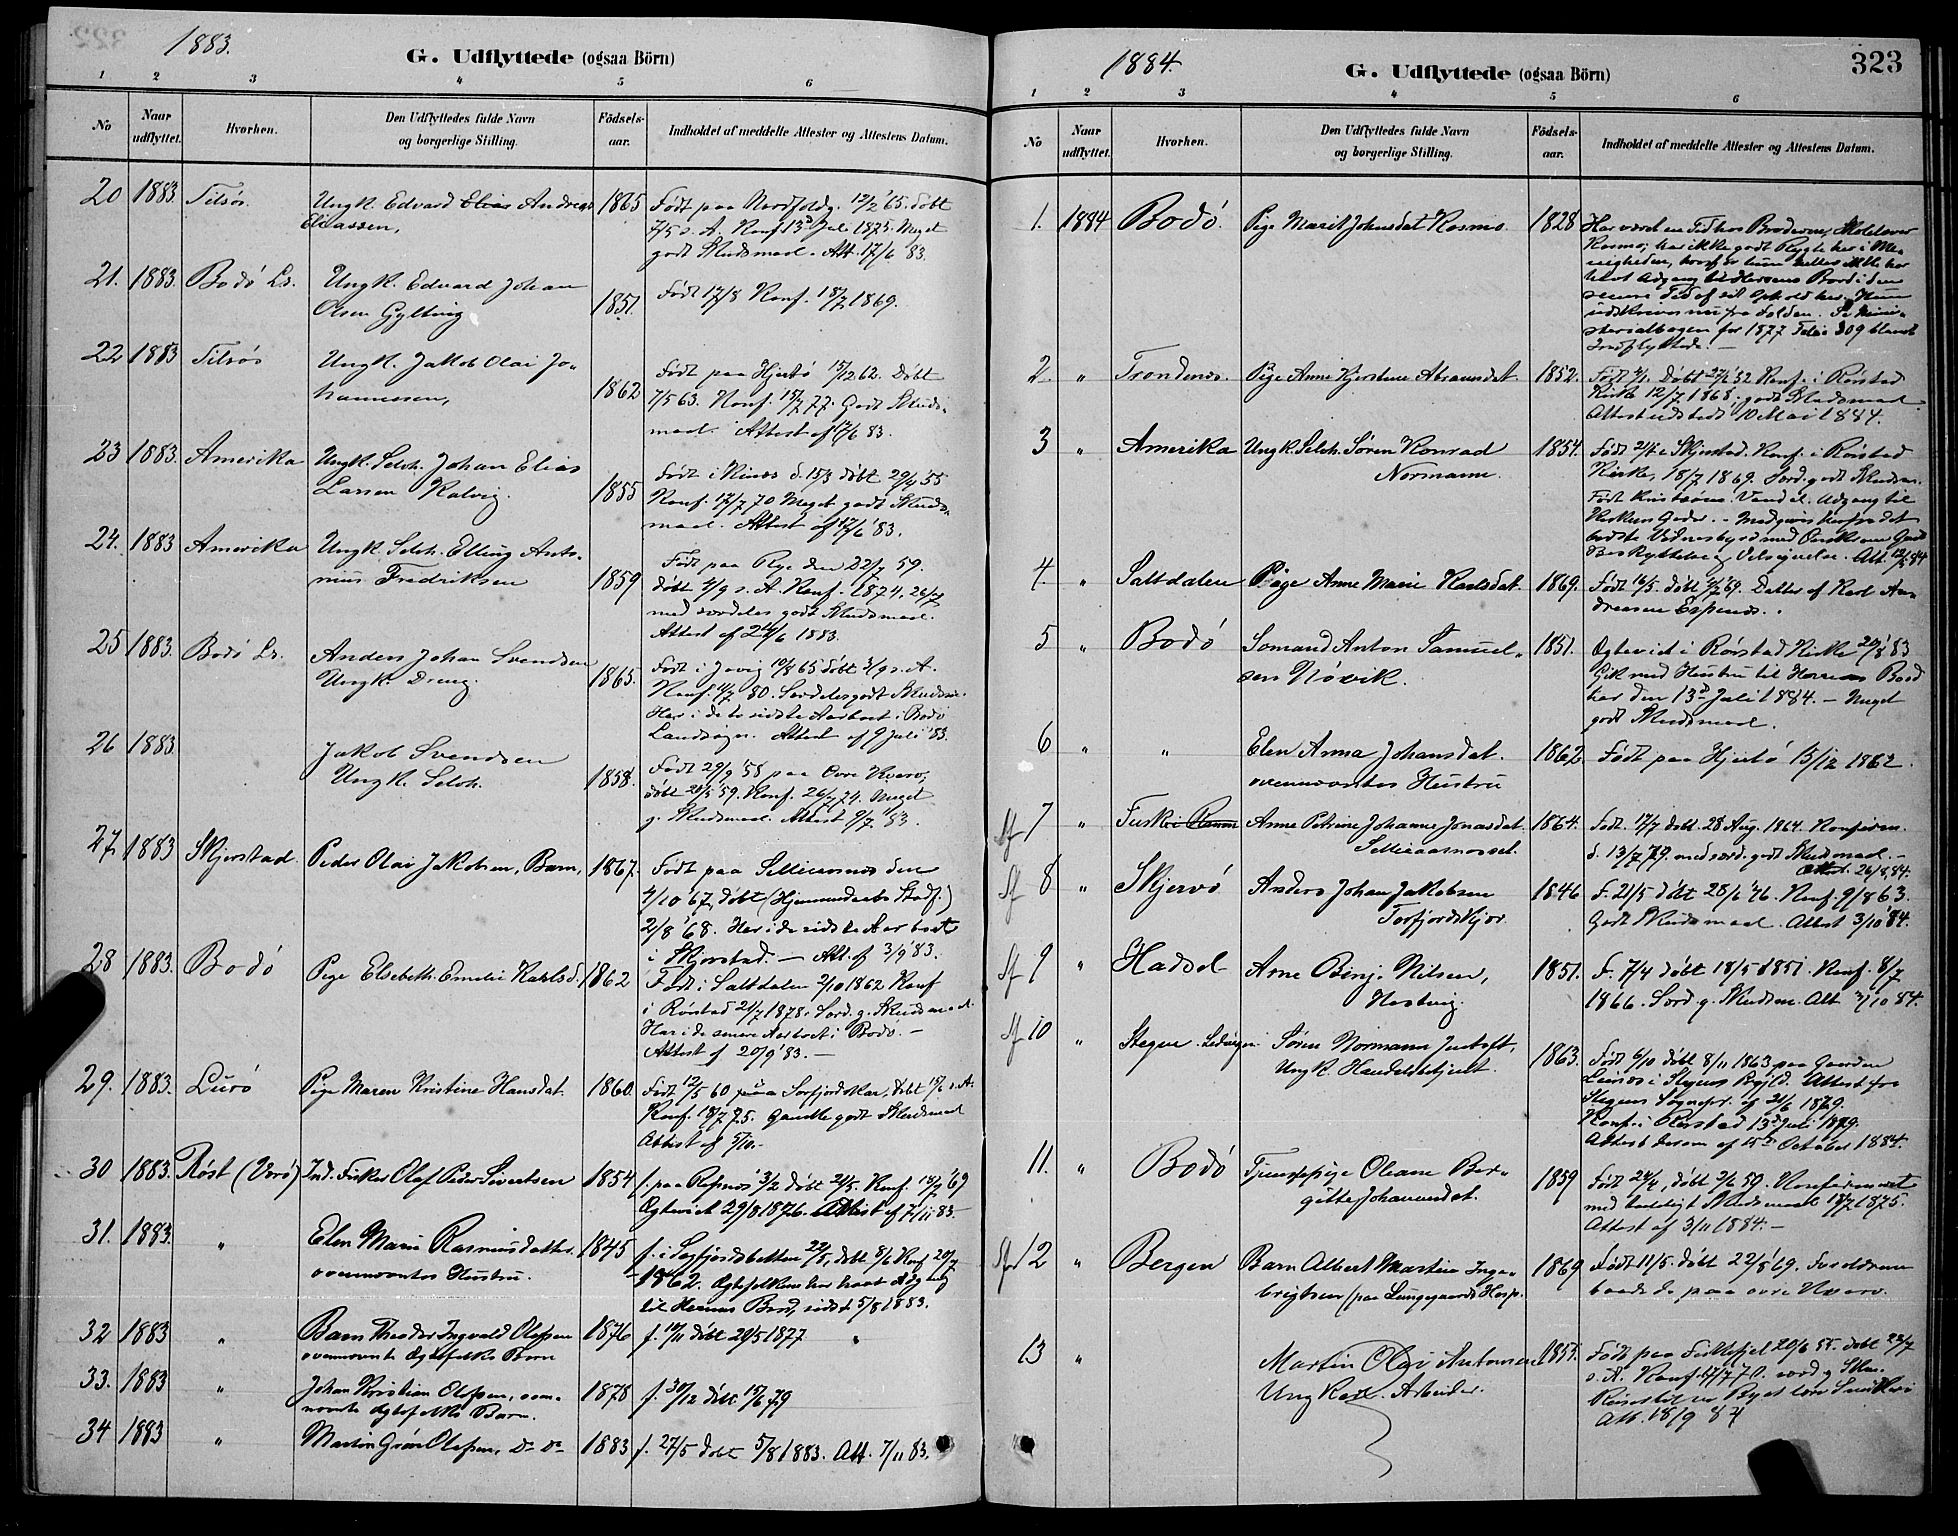 1883.
G. Udflyttede (ogsaa Börn)
1 2 3 4 5 6
No
Naar udflyttet.
Hvorhen.
Den Udflyttedes fulde Navn
og borgerlige Stilling.
Födsels-
aar.
Indholdet af meddelte Attester og Attestens Datum.
20 1883. Ungk. Edvard Elias Andreas 1865 Født paa Nordfold 12/2 65. døbt
Eliassen,
7/5 s. A. Konf. 13d Juli 1875. Meget
godt Skudsmaal. Att. 17/6 83.
21. 1883. Bodö Ls. Ungk. Edvard Johan
Olsen Gylting 1851. Født 17/8 Konf. 18/7 1869.
22 1883 Ungk. Jakob Olai Jo-
hannessen, 1862 Født paa Hjertö 15/12 62. Døbt
7/5 63. Konf. 15/7 77. Godt Skuds-
maal. Attest af 17/6 83.
23 1883. Amerika Ungk. Selvh. Johan Elias
Larsen Kalvig. 1855 Født i d. 15/3 døbt 29/4 55
Konf. 17/7 70 Meget godt Skuds-
maal. Attest af 17/6 83.
24. 1883 Amerika Ungk. Selvh. Elling Ants-
nius Fredriksen 1859 Født paa den 22/7 59.
døbt 4/9 s. A. Konf. 1874, 26/7
med særdeles godt Skudsmaal.
Attest af 24/6 1883.
25 1883. Bodö Ls. Anders Johan Svendsen
Ungk. Dreng. 1865. Født i 10/8 65 døbt 3/9 s. A.
Konf. 4/7 80. Særdeles godt Skudsm.
Har i de to sidste Aar boet i Bodö
Landsogn. Attest af 9 Juli 83.
26 1883. Jakob Svendsen
Ungk. Selvh. 1858. Født 29/9 58 paa Øvre Kvarv,
døbt 28/5 59. Konf. 26/7 74. Meget
g. Skudsmaal. Attest 9/7 83.
27. 1883 Skjerstad. Peder Olai Jakobsen, Barn, 1867. Født paa den
4/10 67, døbt (Hjemmedaab Stadf.)
2/8 68. Har i de sidste Aar boet
i Skjerstad. — Att. af 3/9 83.
28 1883. Bodö Pige Elsebeth Emelie Karlsd. 1862 Født i Saltdalen 2/10 1862 Konf
i Rørstad 21/7 1878. Særd. g. Skudsmaal.
Har i de senere Aar boet i Bodö. —
Attest af 20/9 83. —
29. 1883. Lurö Pige Maren Kristine Hansdat. 1860. Født 12/5 60 paa døbt s. A.
Konf. 18/7 75. Ganske godt Skudsmaal
Attest af 5/10.
30 1883. Röst (Värö) Ind. Fisker Olaf Peder Sivertsen 1854 f. paa Repnæs 3/2 døbt 21/5. Konf. 18/7 69
Ægteviet 29/8 1876. Attest af 7/11 83. —
31. 1883. „ Elen Marie Rasmusdatter 1845 f. i 22/5, døbt 8/6 Konf 20/7
ovennævntes Hustru. 1862. Ægtefolkene har havt Adgang
til Herrens Bord, sidst 5/8 1883.
32 1883 „ Barn Theodor Ingvald Olafsen 1876 f. 19/11 døbt 20/5 1877 „
ovennævnte Ægtefolks Barn
33. 1883 „ Johan Kristian Olafsen, oven- 1878 f. 30/12 døbt 15/6 79
nævnte Ægtefolks Barn.
34 1883 „ Martin Olafsen, Do Do 1883 f. 27/5 døbt 5/8 1883. Att. 7/11 83.
1884.
G. Udflyttede (ogsaa Börn)
323
1 2 3 4 5 6
No
Naar udflyttet.
Hvorhen.
Den Udflyttedes fulde Navn
og borgerlige Stilling.
Födsels-
aar.
Indholdet af meddelte Attester og Attestens Datum.
1. 1884 Bodö. Pige Marit Johnsdat. Kosmo. 1828 Har været en Tid hos Broderen,
Kosmo; har ikke godt Rygte her i Me-
nigheden, hvorfor hun heller ikke har
havt Adgang til Herrens Bord i den
senere Tid af sit Ophold her. Hun
udskreves nu fra Folden. Se Mini-
sterialbogen for 1877 Folio 309 blandt
Indflyttede. —
2. „ Trondenæs. Pige Anne Kjerstine Abramsdat. 1852. Født Døbt Konf. i Rørstad
Kirke 12/7 1868, godt Skudsmaal.
Attest udstedt 10 Mai 1884.
3 „ Amerika Ungk. Selvh. Sören Konrad 1854. Født i Skjerstad. Konf. i Rørstad
Normann. Kirke, 18/7 1869. Særd. godt Skudsm.
Ført kristsømmel. Vandel. Adgang til
Kirkens Goder. — Medgives herfra det
bedste Vidnesbyrd med Ønske om Guds
Beskyttelse og Velsignelse. Att. 12/5 84
4. „ Saltdalen Pige Anne Marie Karlsdat. 1869. Født 16/5. døbt 69. Datter af Karl An-
dreasen Espenæs.
5 „ Bodö Somand Anton Samuel- 1851. Ægteviet i Rørstad Kirke 20/8 83
sen Nøvik. Gik med Hustru til Herrens Bord
her den 13d Juli 1884. — Meget
godt Skudsmaal.
6 „ „ Elen Anna Johansdat. 1862. Født paa Hjertö 15/12 1862.
ovennævntes Hustru
7 „ Anne Petrine Johanne Jonasdat. 1864. Født. 17/7 døbt. 28 Aug. 1864. Konfirm.
d. 13/7 79. med særd. godt Skudsmaal. —
Attest. 26/8 84.
8 „ Skjervö Anders Johan Jakobsen 1846 F. 21/5 døbt 28/6 46. Konf. 9/8 63.
Godt Skudsmaal. Attest 3/10 84.
9 „ Hadsel Arne Benj. Nilsen, 1851. F. 7/4 døbt 18/5 1851. Konf. 8/7
1866. Særd. g. Skudsm. Att. 3/10 84.
10 „ Stegen. Sören Normann Justoft, 1863. Født 6/10 døbt 8/11 1863 paa Gaarden
Ungk. Handelsbetjent Leinæs i Stegens Prgjld. Attest fra
Stegens Sognepr. af 21/6 1879.
Konf. i Rørstad 13d Juli 1879.
Attest derom af 15d October 1884.
11. „ Bodö Tjenestepige Oleane Ber- 1859 Født 24/4, døbt 59. Konfirmeret
gitte Johannesdat. med Skudsmaal 18/7 1875.
Attest af 3/11 1884. —
12 „ Bergen Barn Albert Martin Inge- 1869 Født 11/5. døbt 22/8 69. Forældrene
brigtsen (paa Lungegaards Hosp. boede paa øvre Kvarv.
13 „ Martin Olai Antonsen 1855. Født paa Fiskefjel 20/6 55. døbt 22/7
Ungkarl. Arbeider. s. A. Konf. 17/7 70. særd. g. Sku.
Att. 18/9 84